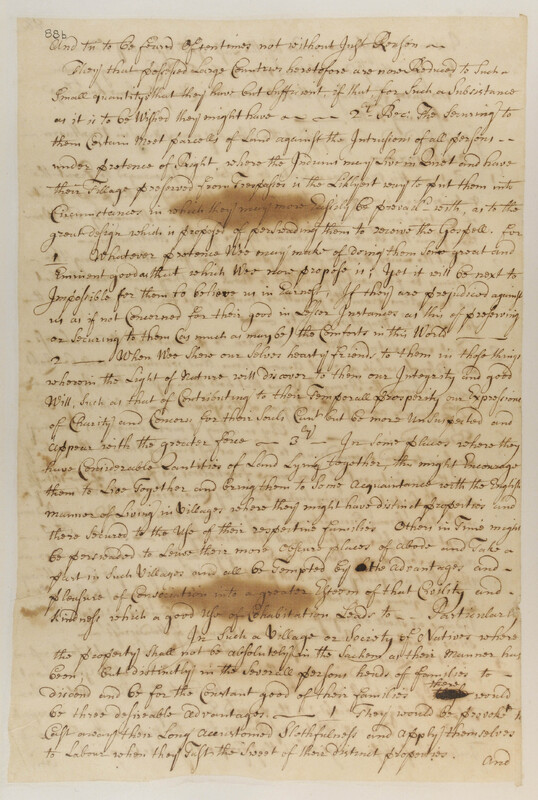 88b
And tis to be feared Oftentimes not without Just Reason
They that possessed Large Countries heretofore are now Reduced to Such
Small quantitys that they have but Sufficient if that for Such a Subsistance
as it is to be Wished they might have 2ly Bec: The Securing to
them Certain Meet parcells of Land against the Intrusions of all persons
under pretence of Right, where the Indians may Live in Quiet and have
their Tillage preserved from Trespasses is the Likliyest way to put them into
Circumstances in which they may more Easily be prevaild with, as to the
great design which is proposed of perswading them to receive the Gospell. For
1 Whatever pretence Wee may make of doing them Some great and
Eminent good as that which Wee now propose is; Yet it will be next to
Impossible for them to believe us in Earnest, If they are prejudiced against
us as if not Concerned for their good in Lesser Instances as this of preserving
or Securing to them (as much as may be) the Comforts in this World
2 When Wee Shew our Selves hearty friends to them in those things
wherein the Light of Nature will discover to them our Integrity and good
Will, Such as that of Contributing to their Temporall prosperity our Expressions
of Charity and Concern for their Souls Cant but be more Unsuspected and
appear with the greater force 3ly In some places where they
have Considerable Quantities of Land Lying together, this might Encourage
them to Live Together and bring them to Some Acquaintance with the English
manner of Living in Villages where they might have distinct properties and
these Secured to the Use of their respective families Others in Time might
be perswaded to Leave their more obscure places of Abode and Take a
part in Such Villages and all be Tempted by the Advantages and
pleasure of Consociation into a greater Esteem of that Civility and
kindness which a good Use of Cohabitation Leads to Particularly
In Such a Village or Society of Natives where
the property shall not be absolutely in the Sachem as their Manner has
been, but distinctly in the Severall persons heads of families to
discend and be for the Constant good of their families there would
be three desirable advantages 1 They would be provokt to
Cast away their Long Accustomed Slothfulness and apply themselves
to Labour when they Tast the Sweet of their distinct properties. And